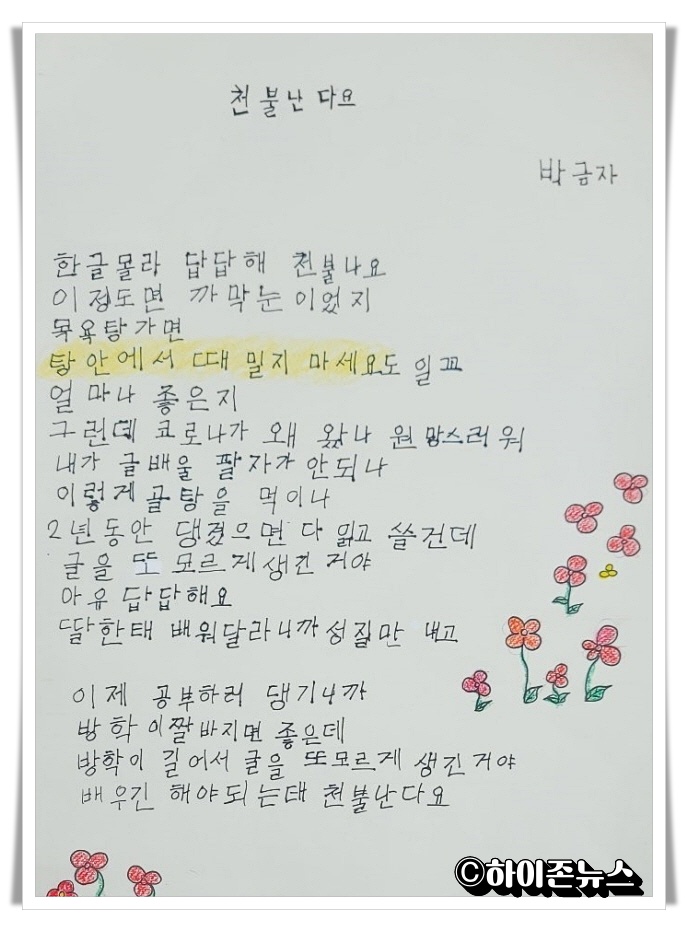 천불난다요
박금자
한글몰라 답답해 천불나요
이정도면 까막눈이었지
목욕탕가면
탕안에서 때밀지 마세요도 일꼬
얼마나 좋은지
그런데 코로나가 왜 왔나 원망스러워
내가 글배울 팔자가 안되나
이렇게 골탕을 먹이나
2년동안 댕겼으면 다 읽고 쓸건데
글을 또 모르게생긴거야
아유 답답해요
딸한태 배워달라니까 성질만 내고
이제 공부하러 댕기니까
방학이짤바지면 좋은데
방학이 길어서 글을 또모르게 생긴거야
배우긴 해야되는태 천불난다요
©하이존뉴스